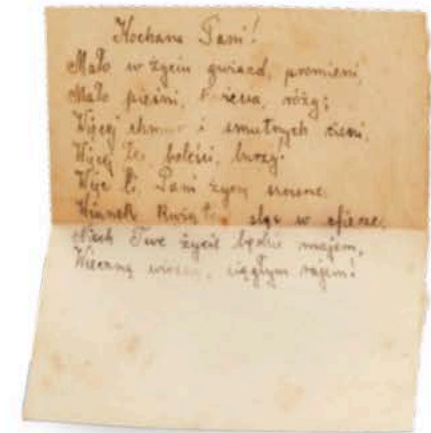 Kochana Pani!
Mało w życiu gwiazd, promieni,
Mało pieśni, róży;
Więcej chmur i smutnych cieni,
Więcej łez, boleści, burzy!
Więc Ci, Pani życzę
Wianek kwiatów, ślę w ofierze,
Niech Twe życie będzie majem,
Wieczną wiosną, ciągłym rajem!